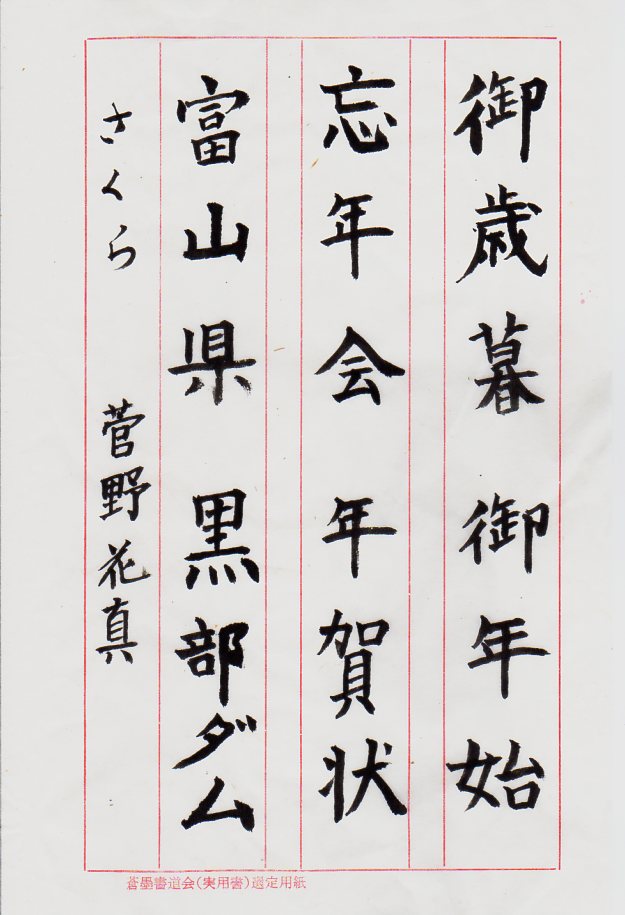 御歳暮 御年始
忘年会 年賀状
富山県 黒部ダム
さくら 菅野花真
蒼墨書道会(実用書)選定用紙